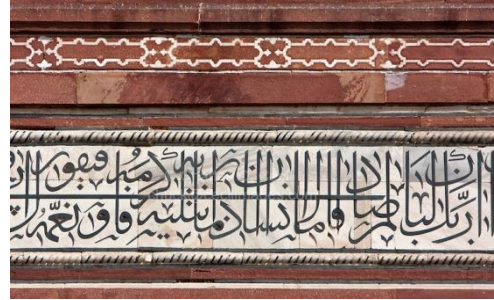 ان ربك لبالمرصاد فاما الانسان اذا ما ابتليه ربه فاكرمه ونعمه فيقول